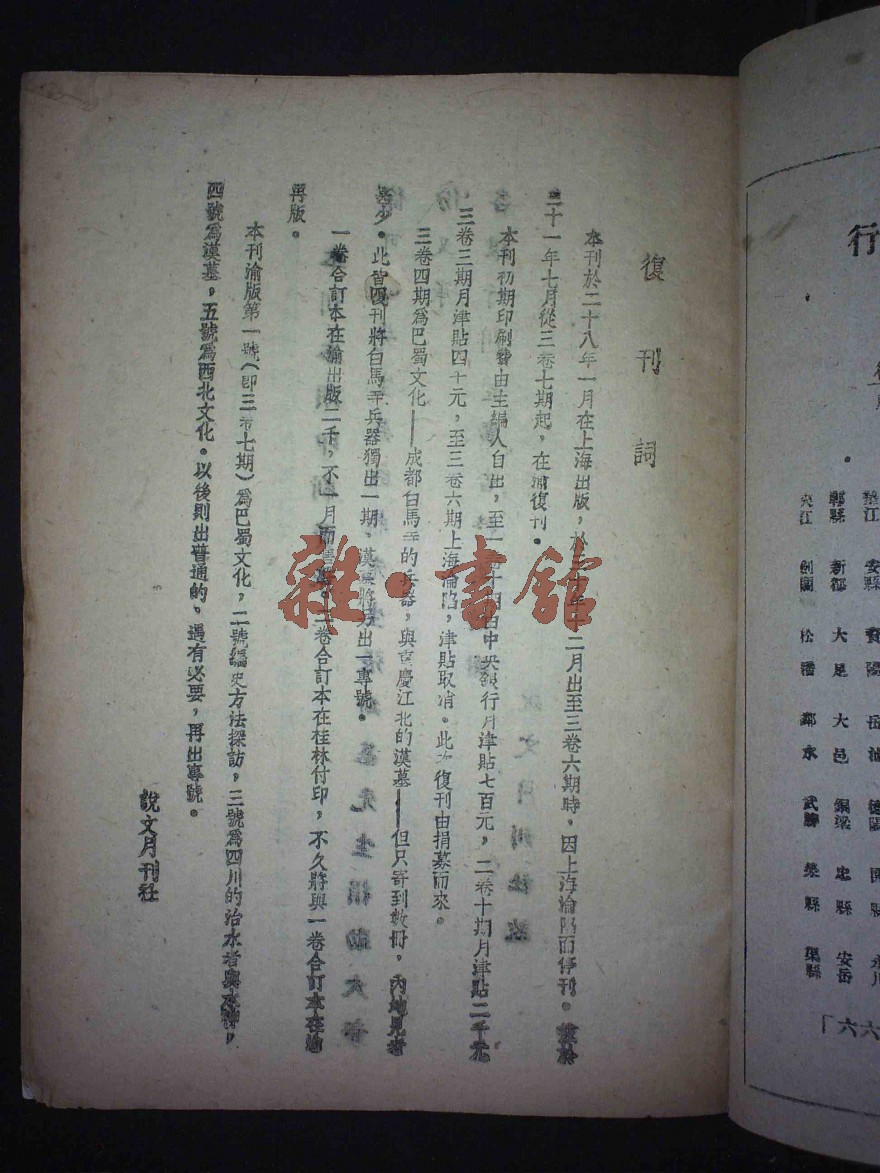 復刊詞
本刊於二十八年一月在上海出版，於三十年十二月出至三卷六期時，因上海淪陷而停刊。茲於
三十一年七月從三卷七期起，在渝復刊。
本刊初期印刷費由主編人自出，至一卷十期由中央銀行月津貼七百元，二卷十期月津貼二千元
三卷三期月津貼四千元，至三卷六期上海淪陷，津貼取消。此次復刊由捐募而來。
三卷四期為巴蜀文化——成都白馬寺的兵器，與重慶江北的漢墓——但只寄到數冊，內地見者
甚少。此皆四刊將白馬寺兵器獨出一期，漢墓將另出一專號。
一卷合訂本在渝出版二千，不一月而罄。二卷合訂本在桂林付印，不久將與一卷合訂本在渝
再版。
本刊渝版第一號（即三卷七期）為巴蜀文化，二號編史方法探訪，三號為四川的治水者與水神，
四號為漢墓，五號為西北文化。以後則出普通的，遇有必要，再出專號。
說文月刊社
雜·書館
行
墊江 安縣 資陽 岳池 德陽 開縣 永川
郫縣 新都 大足 大邑 銅梁 忠縣 安岳
夾江 劍閣 松潘 鄰水 武勝 榮縣 渠縣
六六」